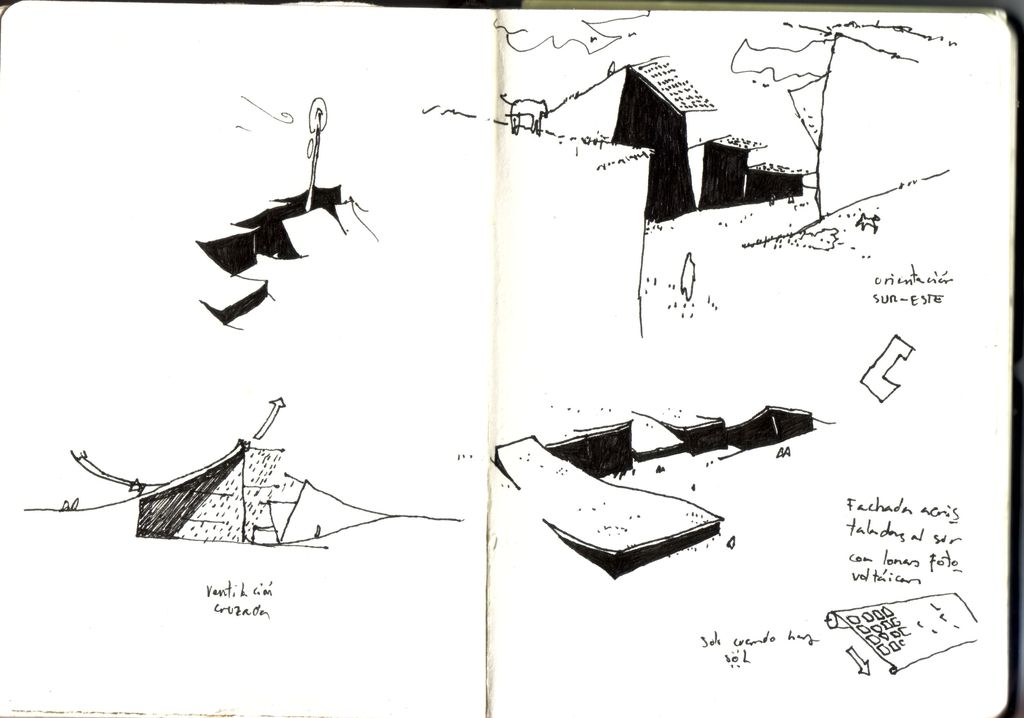 ventilación
cruzada
orientación
SUR-ESTE
Fachadas acris
taladas al sur
con lonas foto
voltáicas
solo cuando hay
sol